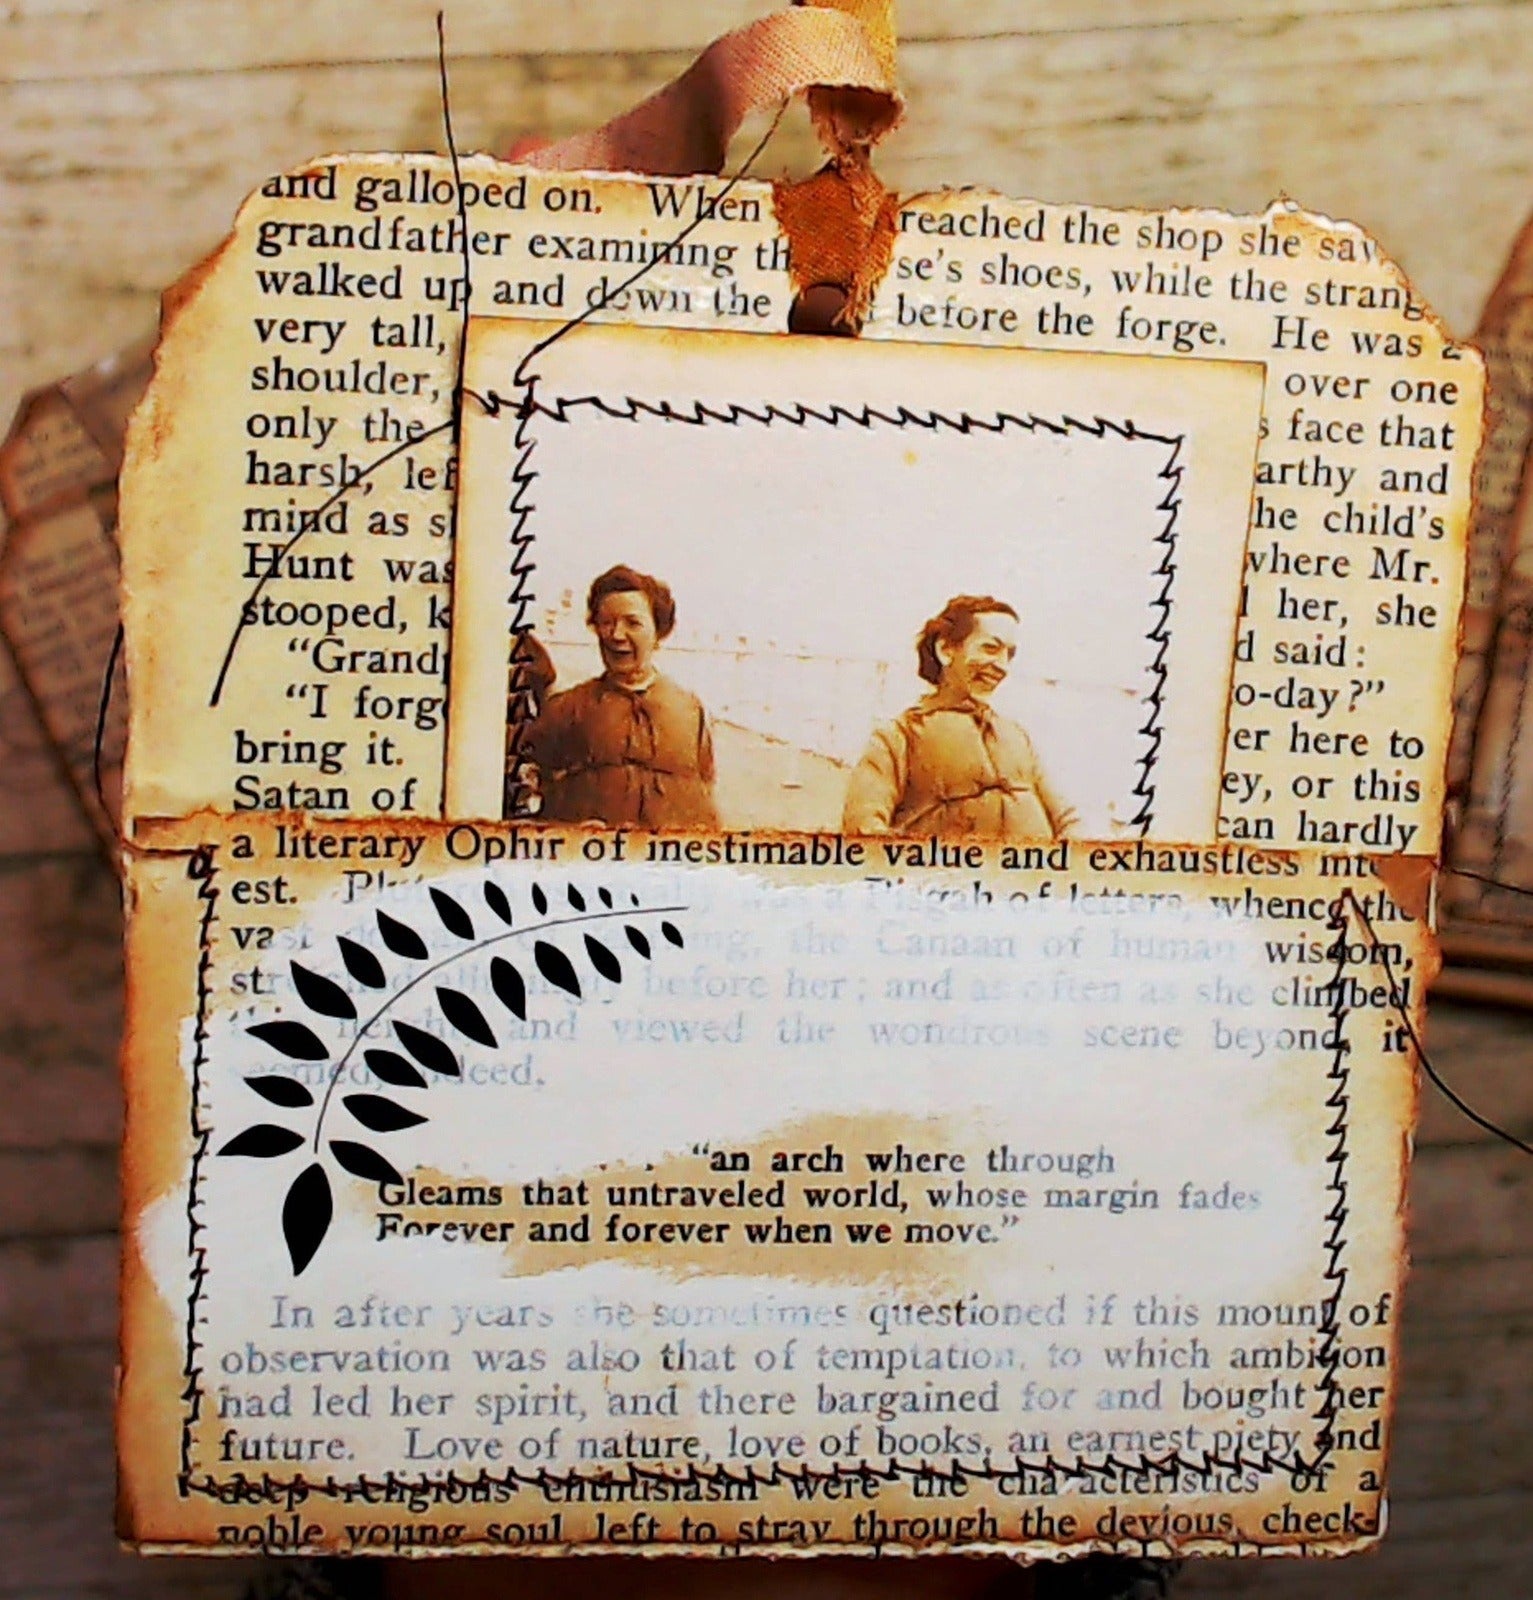 and galloped on. When reached the shop she saw
grandfather examining th se's shoes, while the strang
walked up and down the before the forge. He was a
very tall,
shoulder, over one
only the s face that
harsh, lef arthy and
mind as s he child's
Hunt was where Mr.
stooped, k l her, she
"Grand d said:
"I forg o-day?"
bring it. er here to
Satan of ey, or this
can hardly
a literary Ophir of inestimable value and exhaustless inte
est. was a Pisgah of letters, whence the
va the Canaan of human wisdom,
before her; and as often as she climbed
this height and viewed the wondrous scene beyond, it
seemed, indeed,
"an arch where through
Gleams that untraveled world, whose margin fades
Forever and forever when we move."
In after years she sometimes questioned if this mount of
observation was also that of temptation, to which ambition
had led her spirit, and there bargained for and bought her
future. Love of nature, love of books, an earnest piety and
deep religious enthusiasm were the characteristics of a
noble young soul, left to stray through the devious, check-